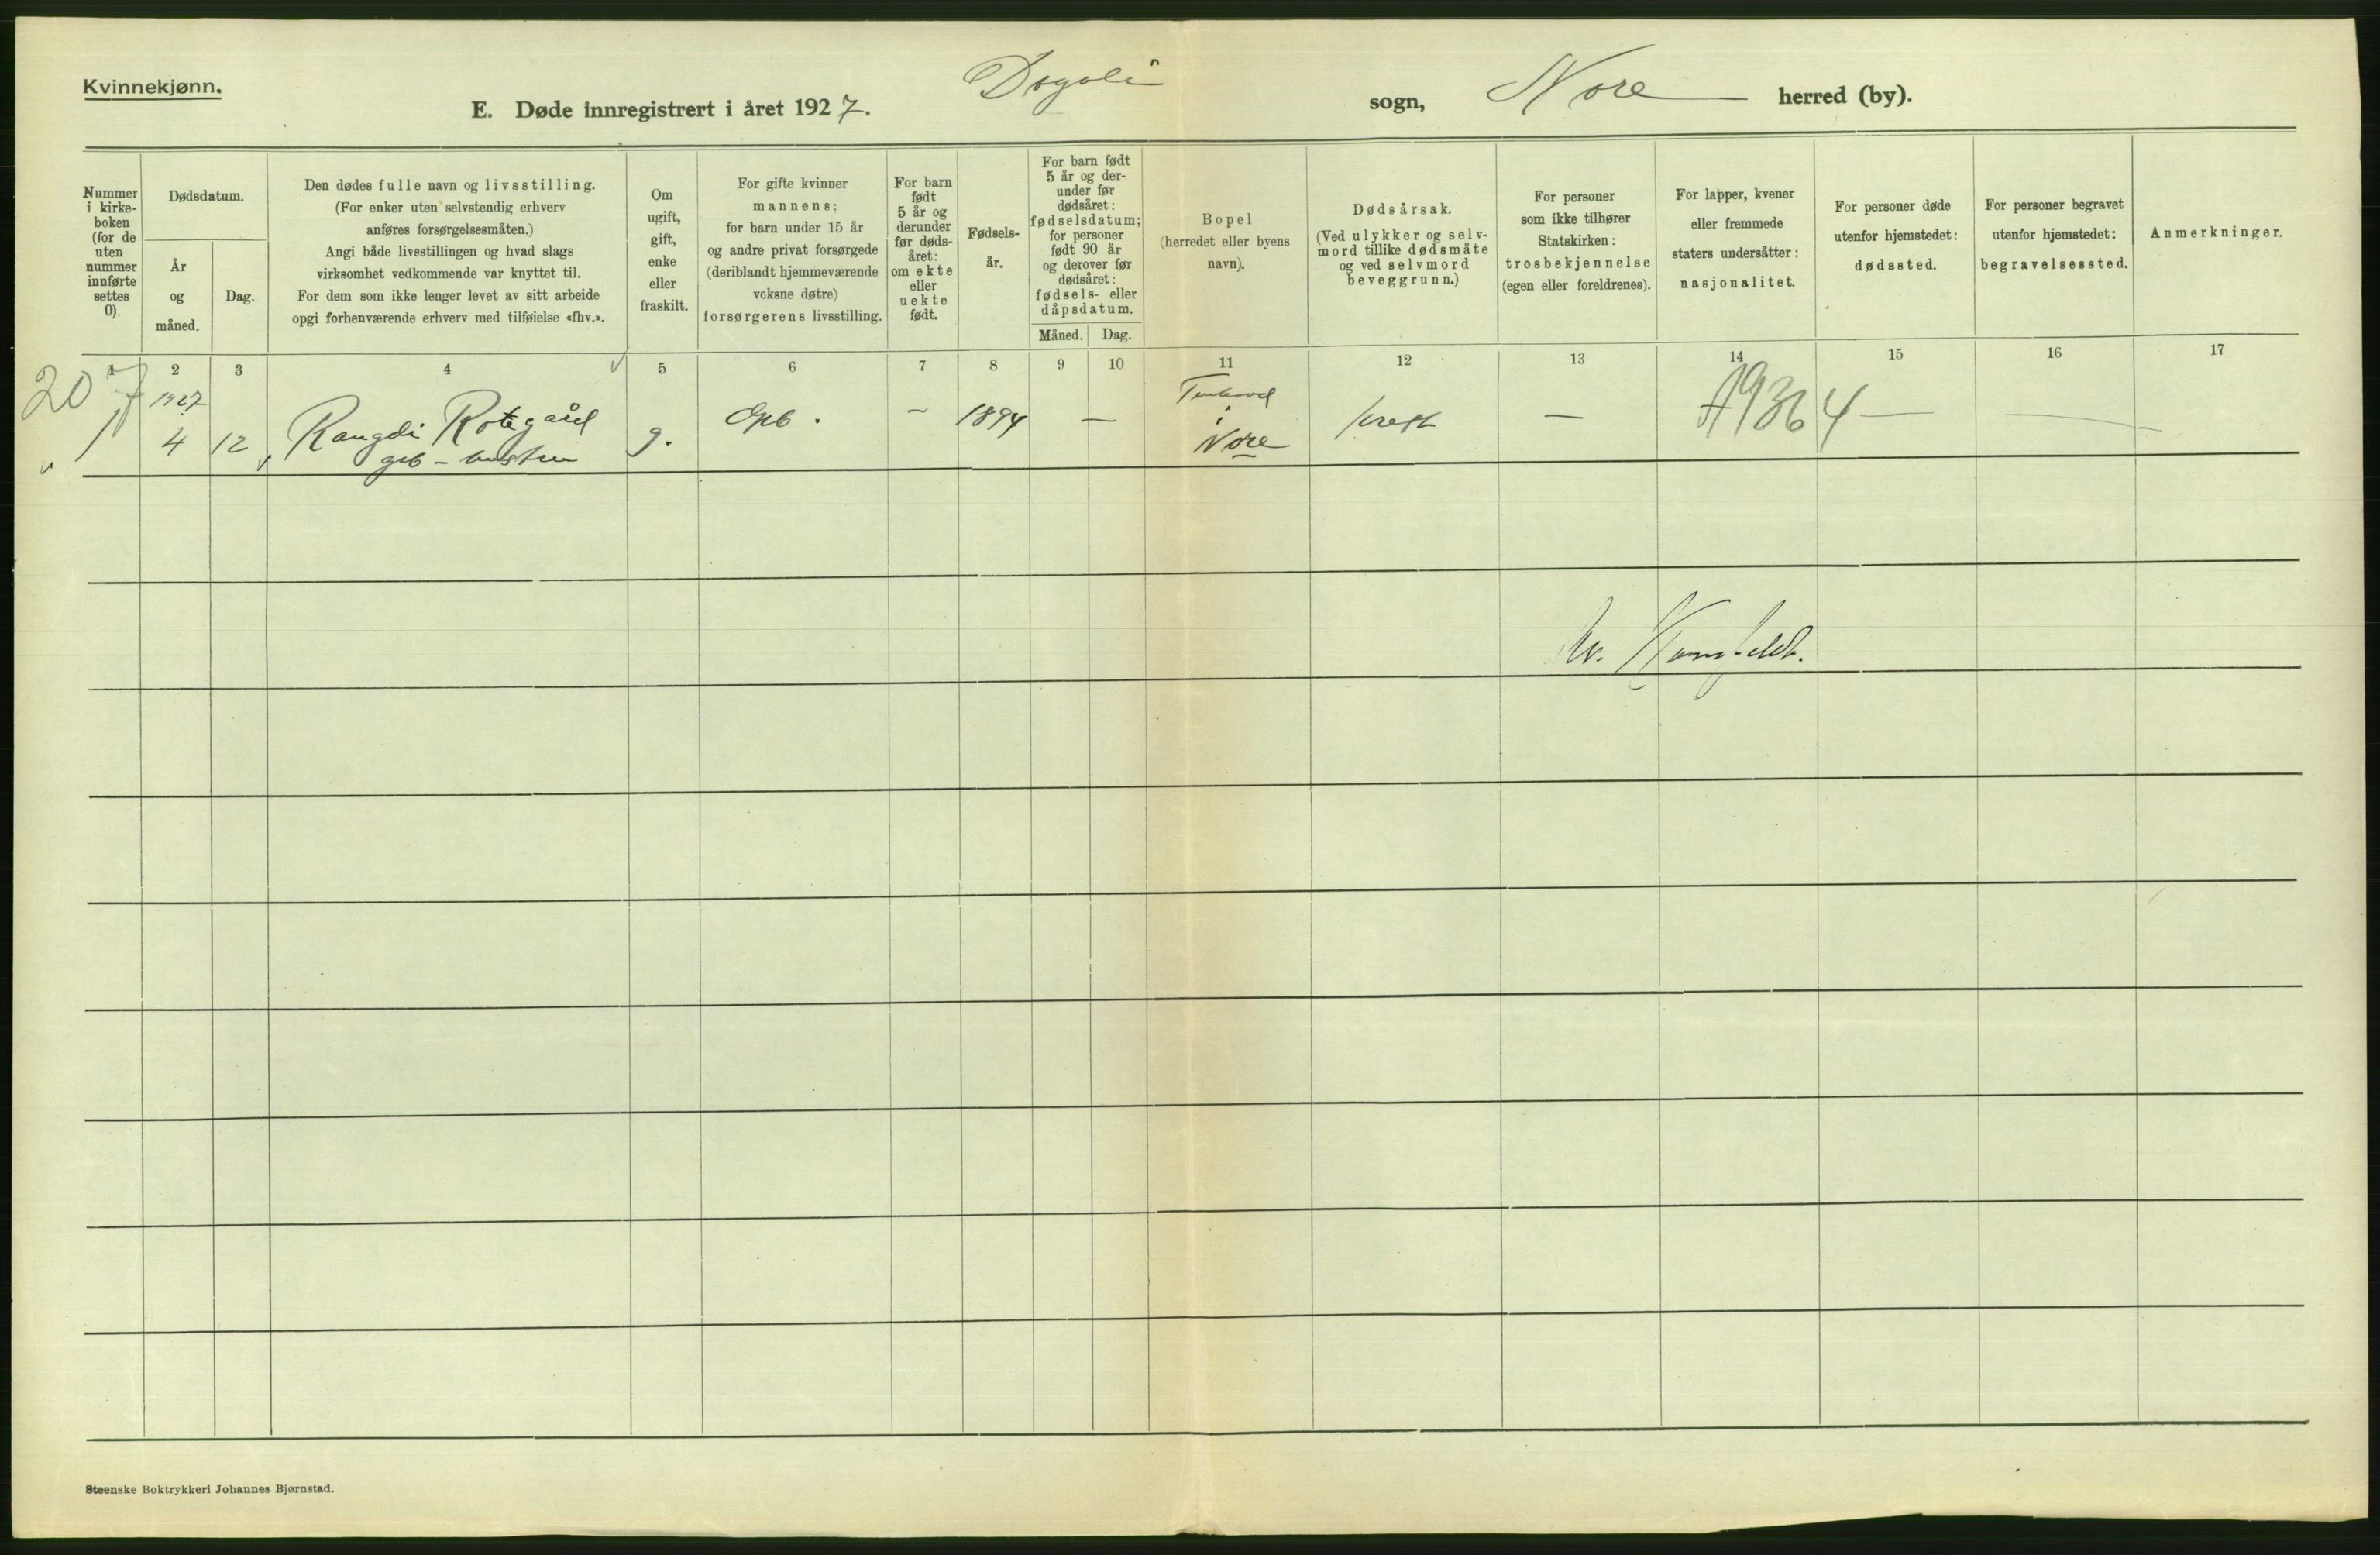 Kvinnekjønn.
E. Døde innregistrert i året 1927. Dagali sogn, Nore herred (by).
Nummer
i kirke-
boken
(for de
uten
nummer
innførte
settes
0).
Dødsdatum.
År
og
måned.
Dag.
Den dødes fulle navn og livsstilling.
(For enker uten selvstendig erhverv
anføres forsørgelsesmåten.)
Angi både livsstillingen og hvad slags
virksomhet vedkommende var knyttet til.
For dem som ikke lenger levet av sitt arbeide
opgi forhenværende erhverv med tilføielse «fhv.».
Om
ugift,
gift,
enke
eller
fraskilt.
For gifte kvinner
mannens;
for barn under 15 år
og andre privat forsørgede
(deriblandt hjemmeværende
voksne døtre)
forsørgerens livsstilling.
For barn
født
5 år og
derunder
før døds-
året:
om ekte
eller
uekte
født.
Fødsels-
år.
For barn født
5 år og der-
under før
dødsåret:
fødselsdatum;
for personer
født 90 år
og derover før
dødsåret:
fødsels- eller
dåpsdatum.
Måned. Dag.
Bopel
(herredet eller byens
navn).
Dødsårsak.
(Ved ulykker og selv-
mord tillike dødsmåte
og ved selvmord
beveggrunn.)
For personer
som ikke tilhører
Statskirken:
trosbekjennelse
(egen eller foreldrenes).
For lapper, kvener
eller fremmede
staters undersåtter:
nasjonalitet.
For personer døde
utenfor hjemstedet:
dødssted.
For personer begravet
utenfor hjemstedet:
begravelsessted.
Anmerkninger.
1 2 3 4 5 6 7 8 9 10 11 12 13 14 15 16 17
207
1927
1 4 12 Rangdi Rotegård g. Gpb. – 1894 — i Nore kreft — A9364 — —
Steenske Boktrykkeri Johannes Bjørnstad.